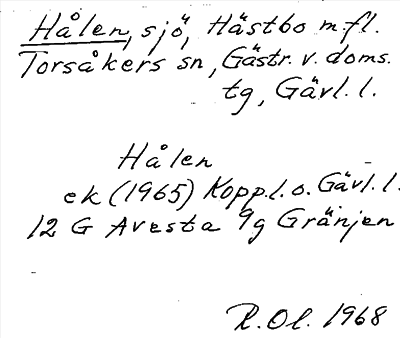 Hålen, sjö, Hästbo m fl.
Torsåkers sn, Gästr. v. doms.
tg, Gävl. l.
Hålen
ek (1965) Kopp.l. o. Gävl. l.
12 G Avesta 9g Gränjen
R. Ol. 1968